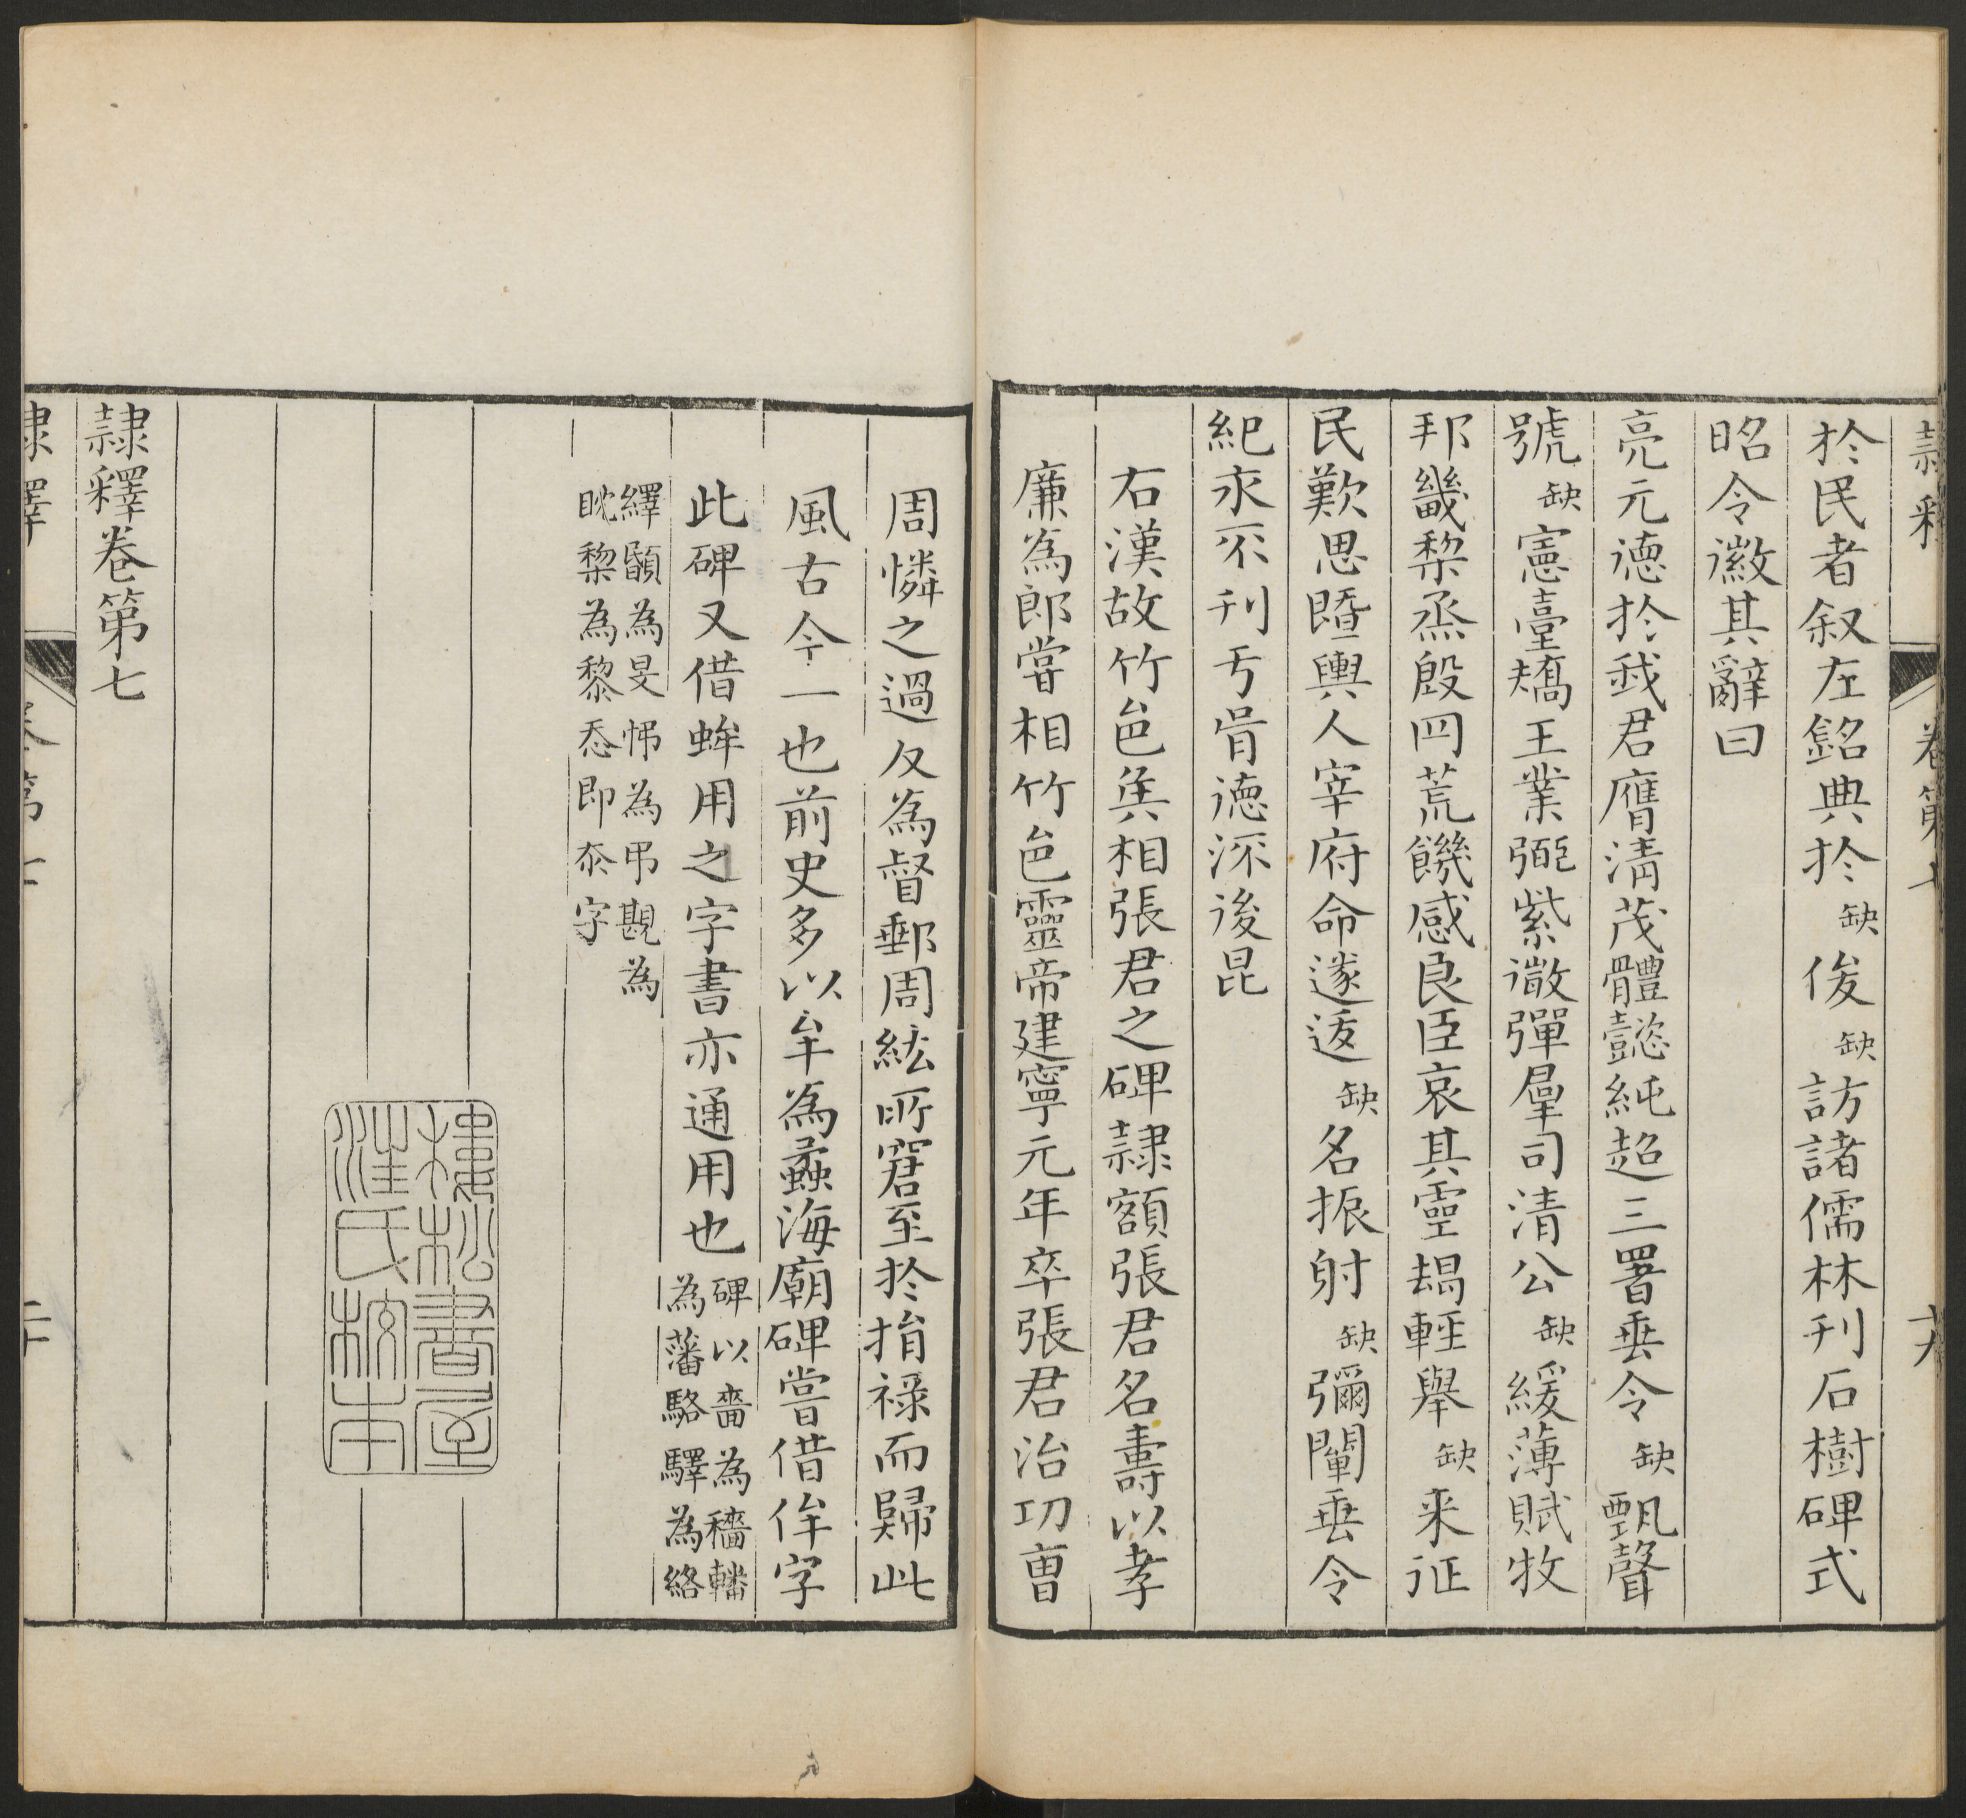 隸釋 卷第七 十九
於民者叙左銘典於缺俊缺訪諸儒林刊石樹碑式
昭令徽其辭曰
亮元德於我君膺清茂體懿純超三署垂令缺甄聲
號缺憲臺矯王業弼紫徽彈羣司清公缺緩薄賦牧
邦畿棃烝殷罔荒饑感良臣哀其靈朅輕舉缺来征
民歎思暨輿人宰府命遂逡缺名振射缺彌闡垂令
紀永不刊亏胥德深後昆
右漢故竹邑矦相張君之碑隸額張君名壽以孝
廉為郎嘗相竹邑靈帝建寧元年卒張君治功曹
周憐之過反為督郵周紘所窘至於捐祿而歸此
風古今一也前史多以牟為蟊海廟碑嘗借侔字
此碑又借蛑用之字書亦通用也碑以嗇為穡轓
為藩駱驛為絡
繹顝為旻悌為弔覯為
眈棃為黎忝即忝字
樓松書屋
汪氏校本
隸釋卷第七
隸釋 卷第七 二十